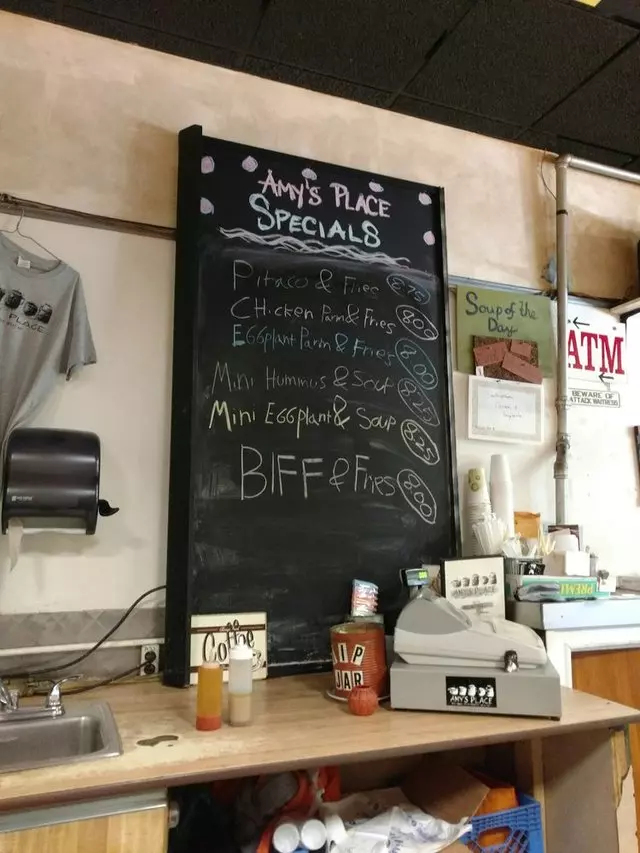 AMY'S PLACE
SPECIALS
Pitaco & Fries 8.75
CHicken Parm & Fries 800
EGGplant Parm & Fries 8.00
Mini Hummus & Soup 8.25
Mini EGGplant & Soup 8.25
BIFF & Fries 8.00
PLACE
Soup of the
Day
ATM
BEWARE OF
ATTACK WAITRESS
Coffee
TIP
JAR
AMY'S PLACE
AMY'S PLACE
PREMI